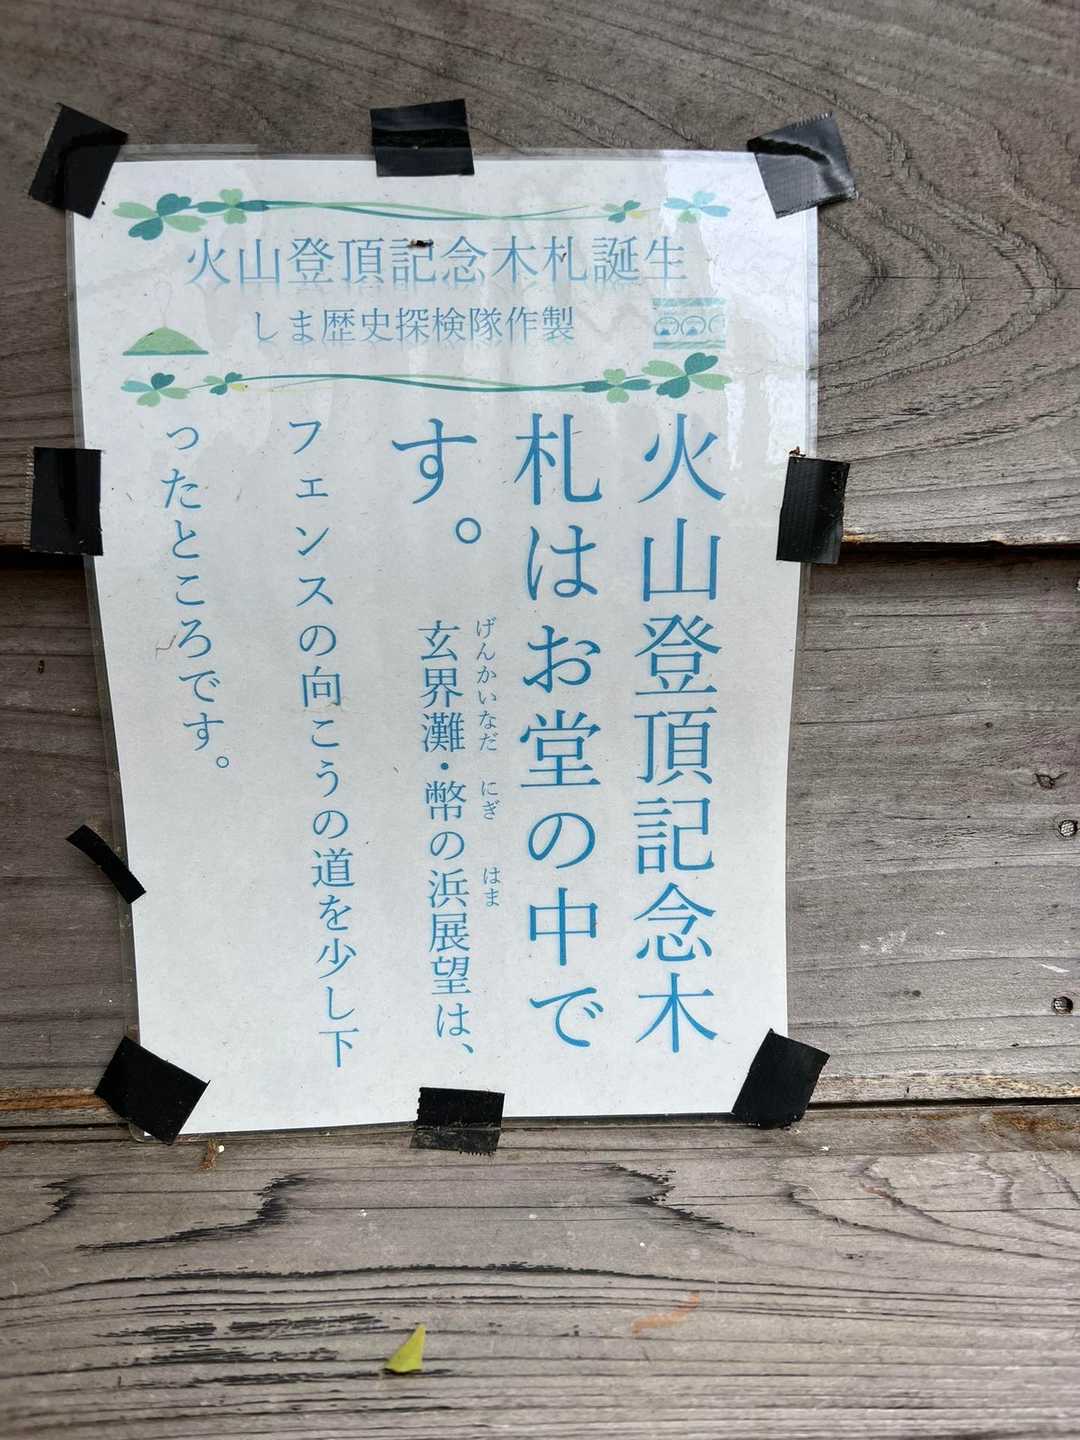 火山登頂記念木札誕生
しま歴史探検隊作製
火山登頂記念木
札はお堂の中で
す。
げんかいなだ にぎ はま
玄界灘・幣の浜展望は、
フェンスの向こうの道を少し下
ったところです。